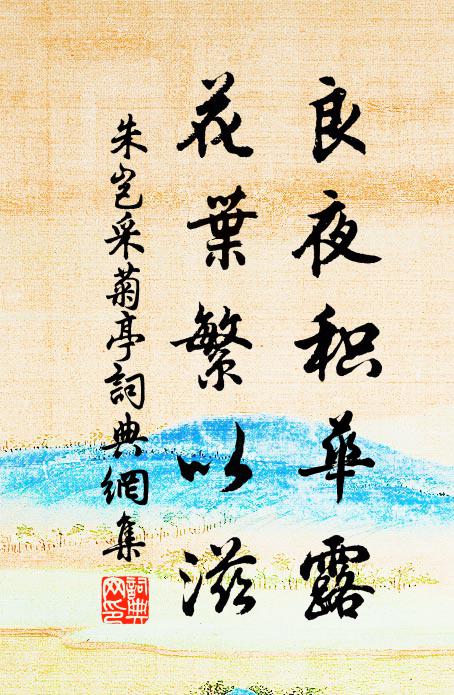 良夜积華露
花葉繁以滋
朱岂采菊亭詞典網集
詞典網印